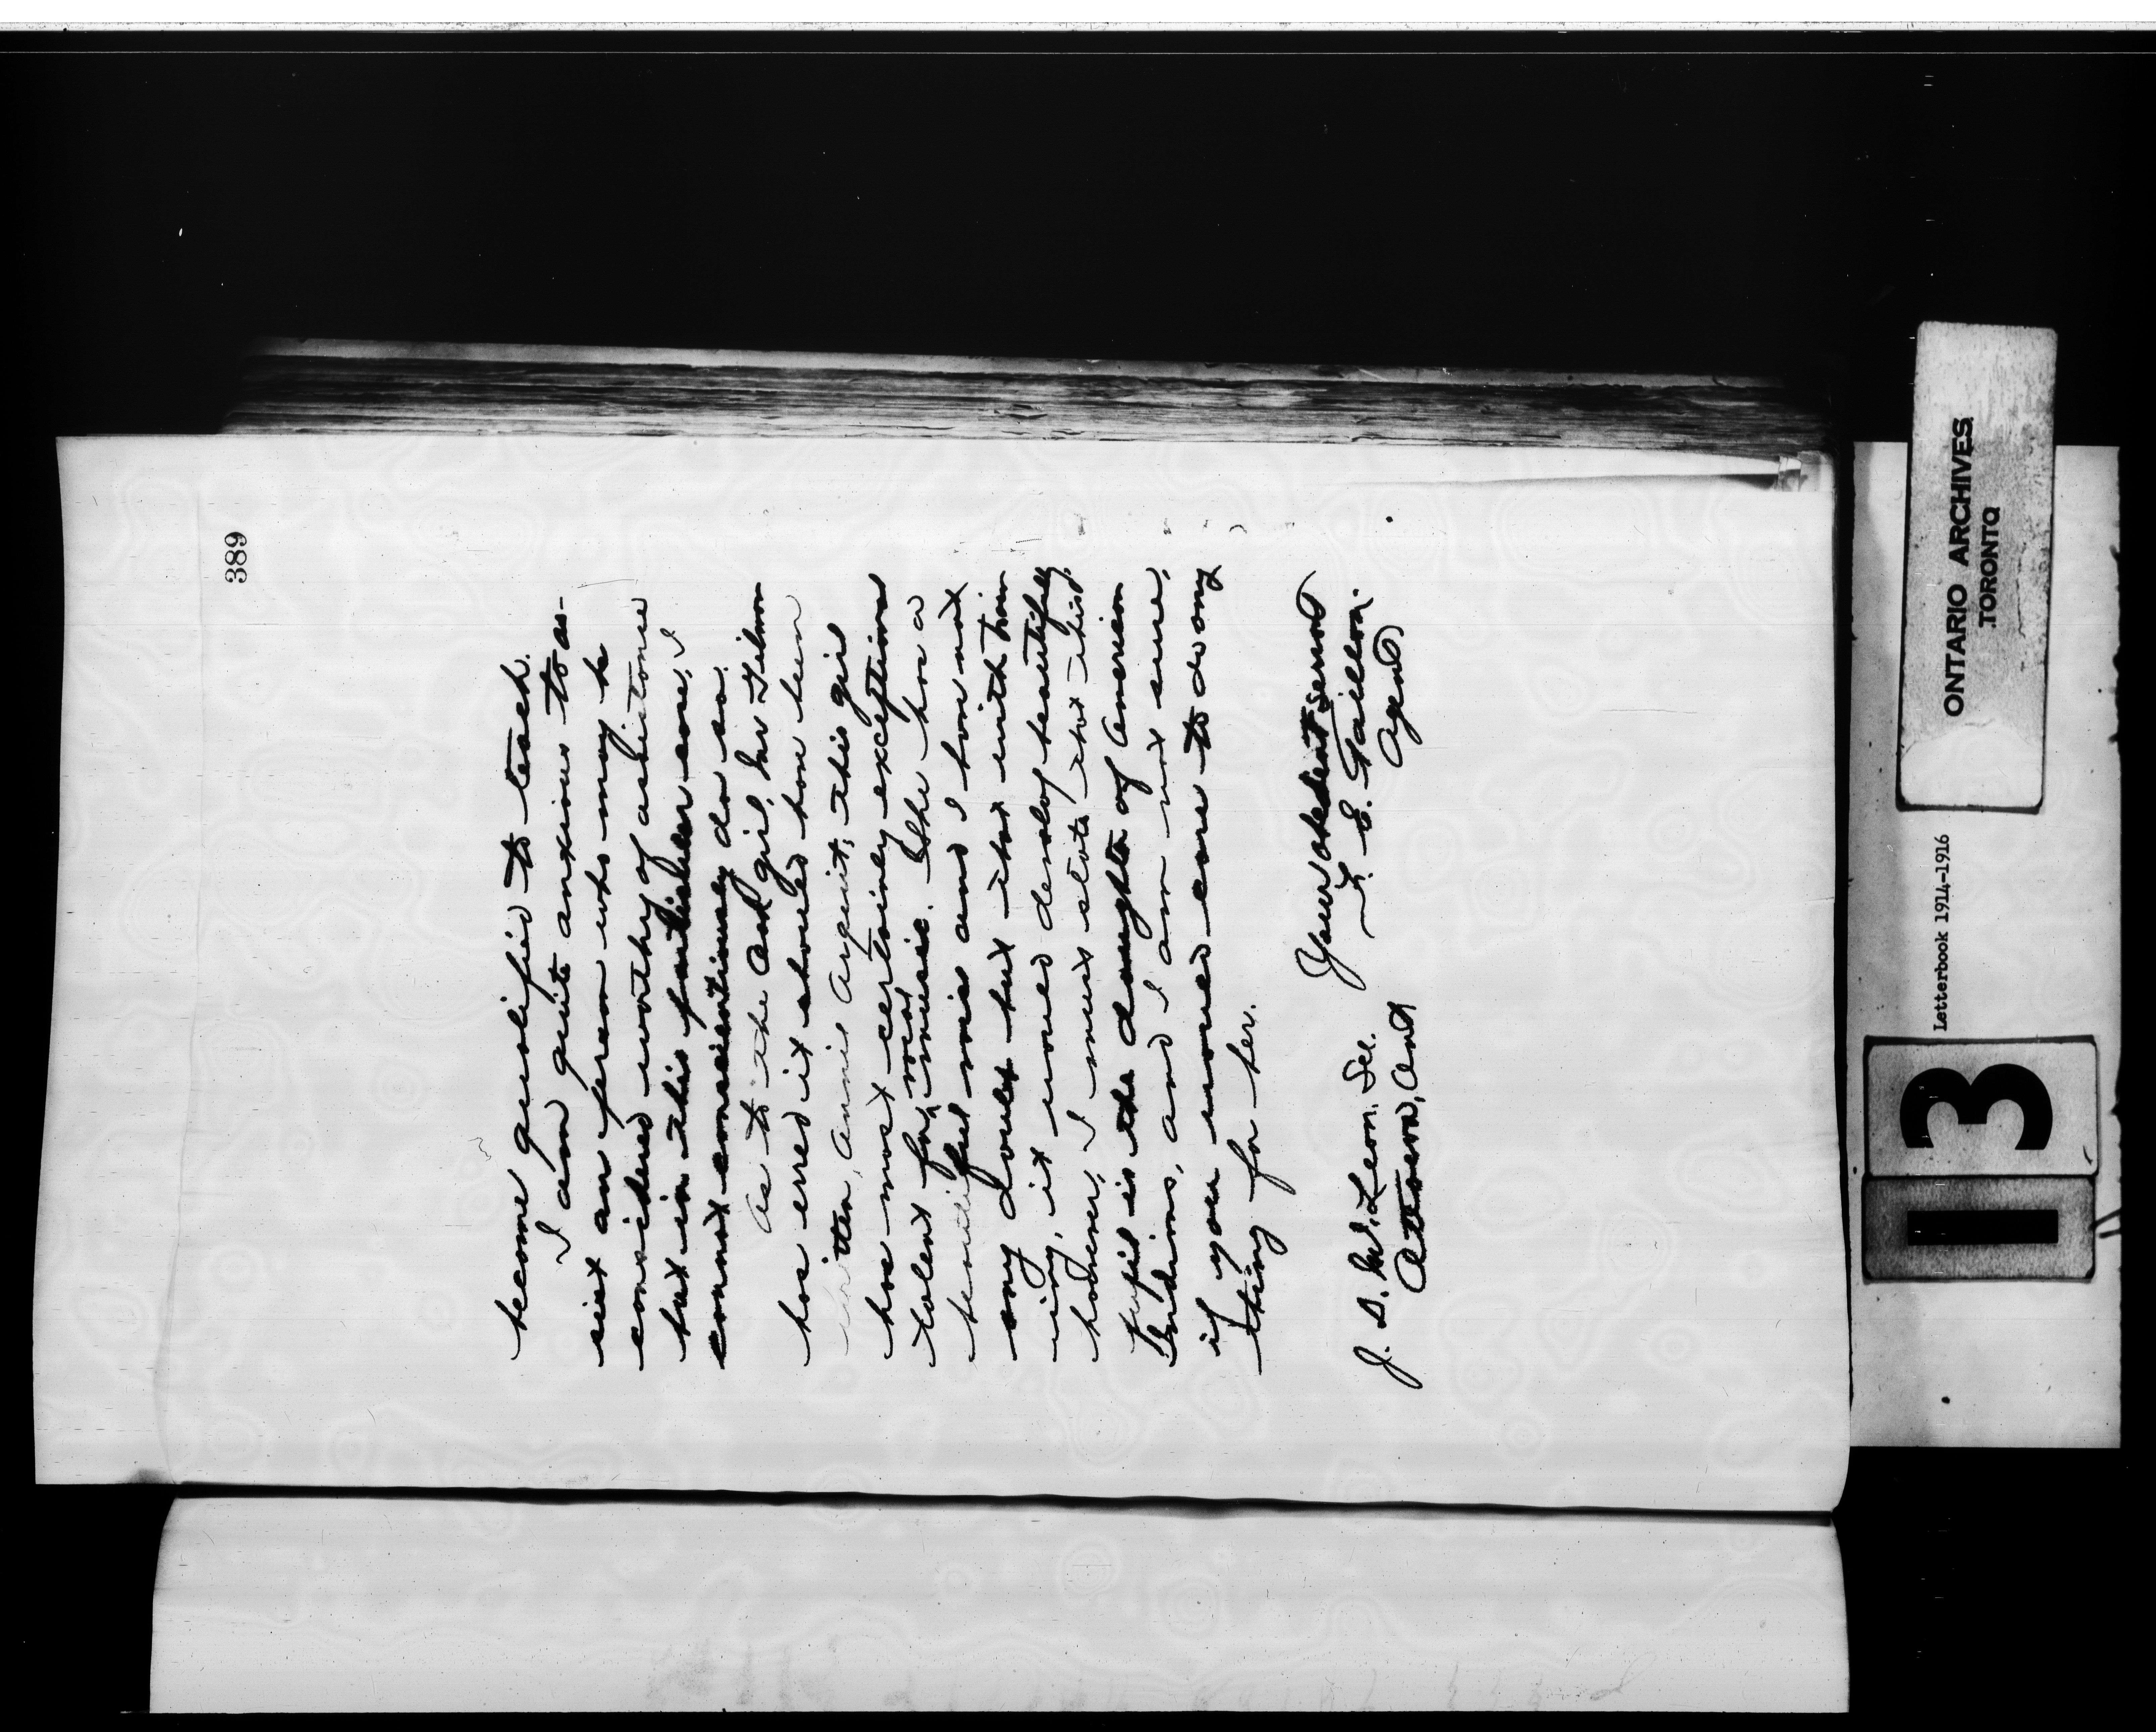 389
become qualified to teach.
I am quite anxious to as-
sist any person who may be
considered worthy of assistance
but in this particular case, I
cannot conscientiously do so.
As to the Oak girl, Mr Tilson
has erred it should have been
written, Annie Argunit, this girl
has most certainly exceptional
talent for vocal music. She has a
beautiful voice and I have not
any doubt but that with train-
ing, it would develop beautifully
however, I must state that this
pupil is the daughter of American
Indians, and I am not sure,
if you would care to do any
thing for her.
Your obedient servant
T. E. Faillon.
Agent
J. D. McLean. Sec.
Ottawa, Ont
ONTARIO ARCHIVES
TORONTO
Letterbook 1914-1916
13